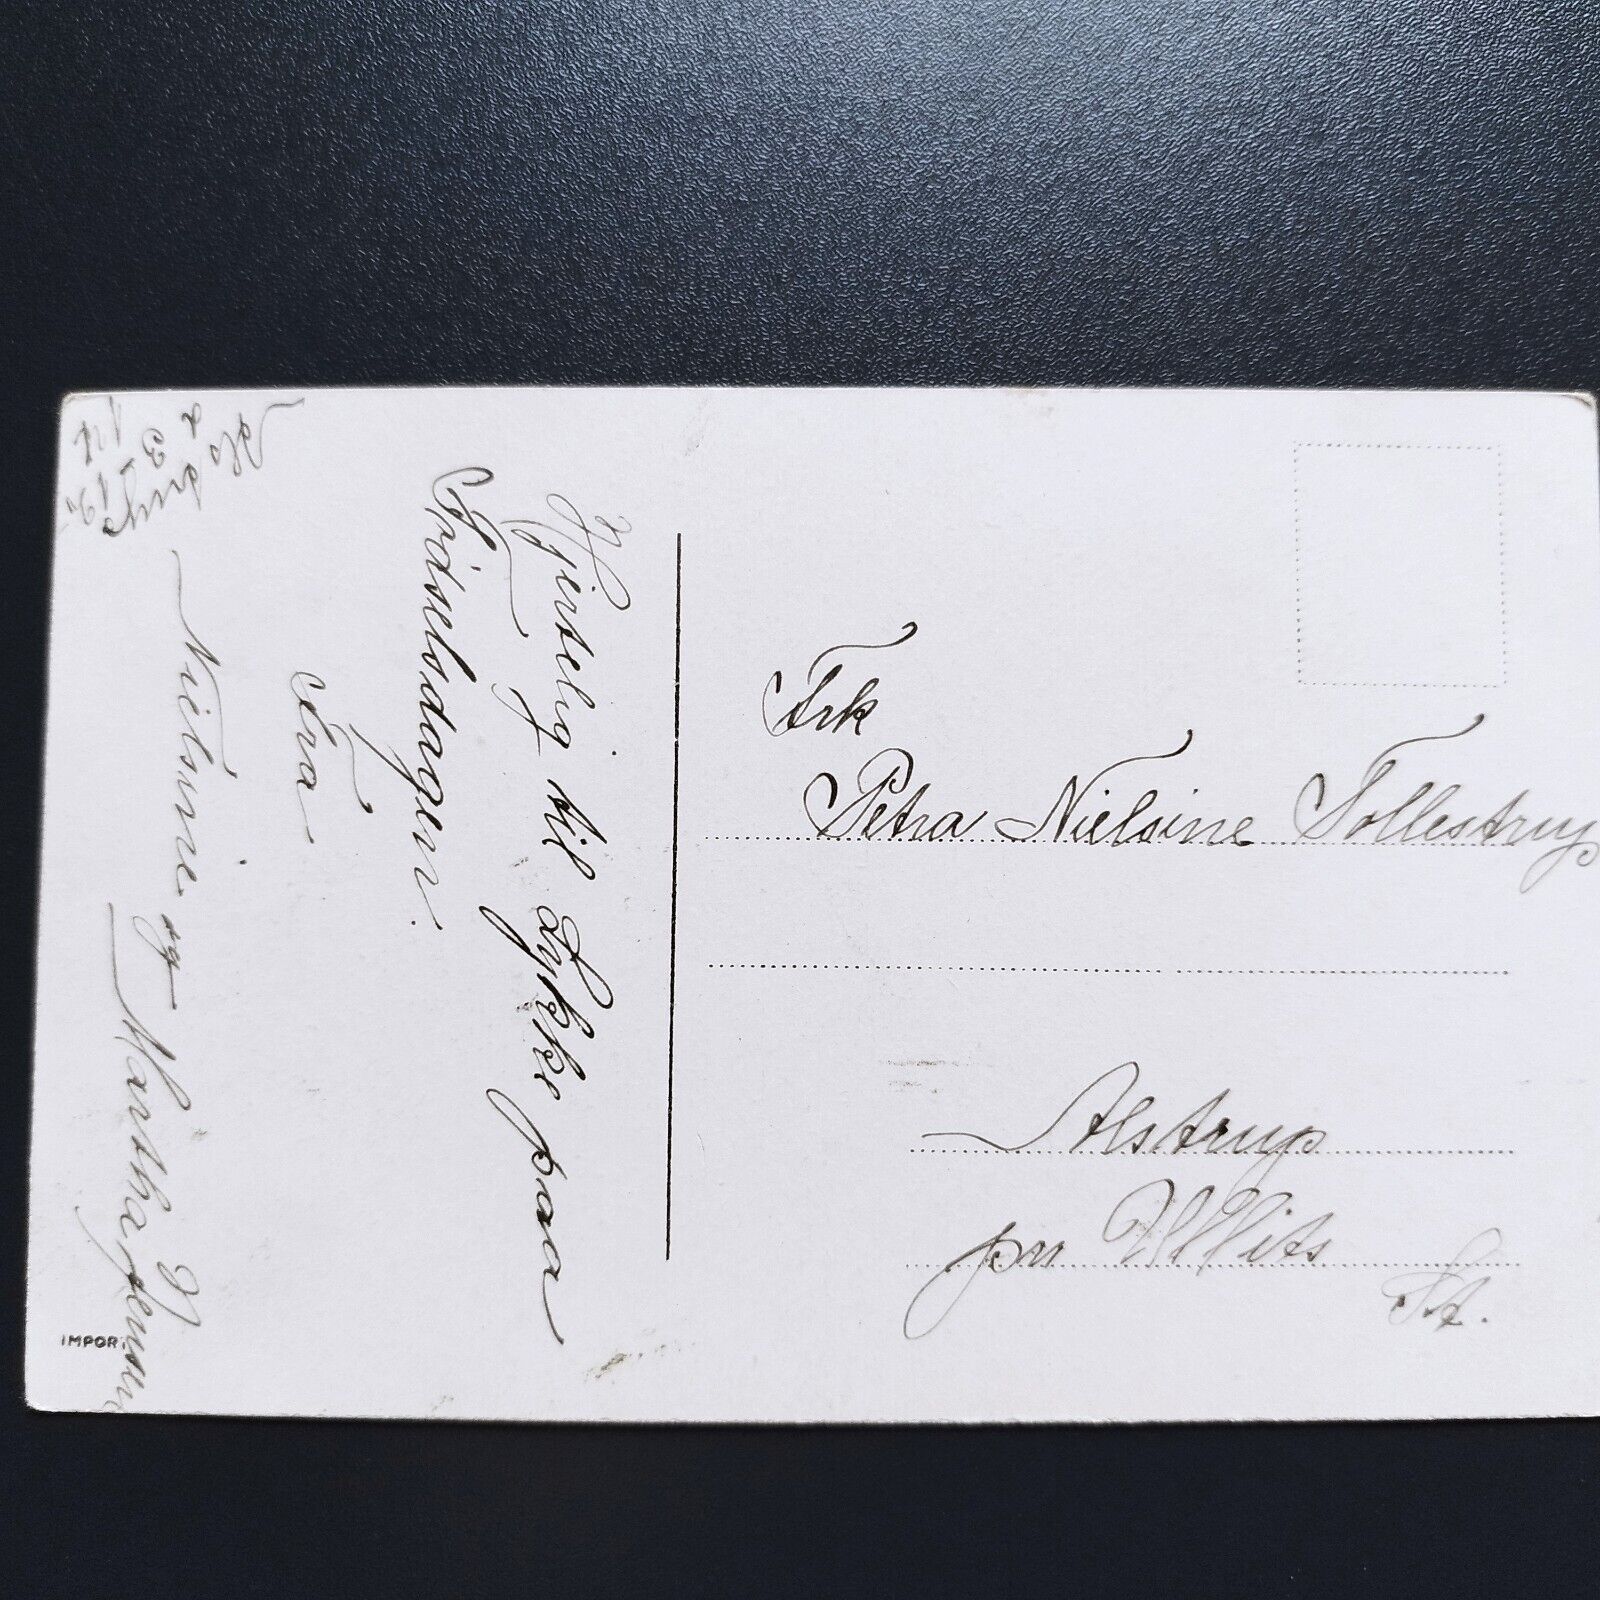 Hjertelig til Lykke paa
Födselsdagen.
Fra
Nielsine og Martha Jensen
Frk
Petra Nielsine Tollestrup
Alstrup
pr Ullits
St.
IMPOR